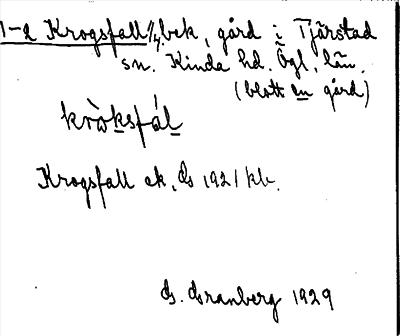 1-2 Krogsfall 1/4, bek, gård i Tjärstad
sn. Kinda hd. Ögl. län.
(blott en gård)
kròksfál
Krogsfall ek, Ds 1921 kb.
G. Granberg 1929